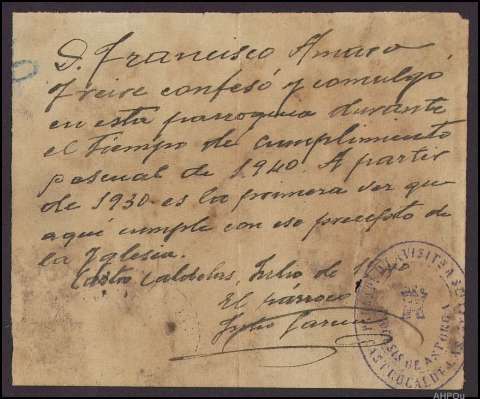 D. Francisco Amaro
Freire confesó y comulgó
en esta parroquia durante
el tiempo de cumplimiento
pascual de 1940. A partir
de 1930 es la primera vez que
aquí cumple con ese precepto de
la Iglesia.
Castro Caldelas, Julio de
El párroco
DIOCESIS DE ASTORGA
CASTROCALDELAS
AHPOu